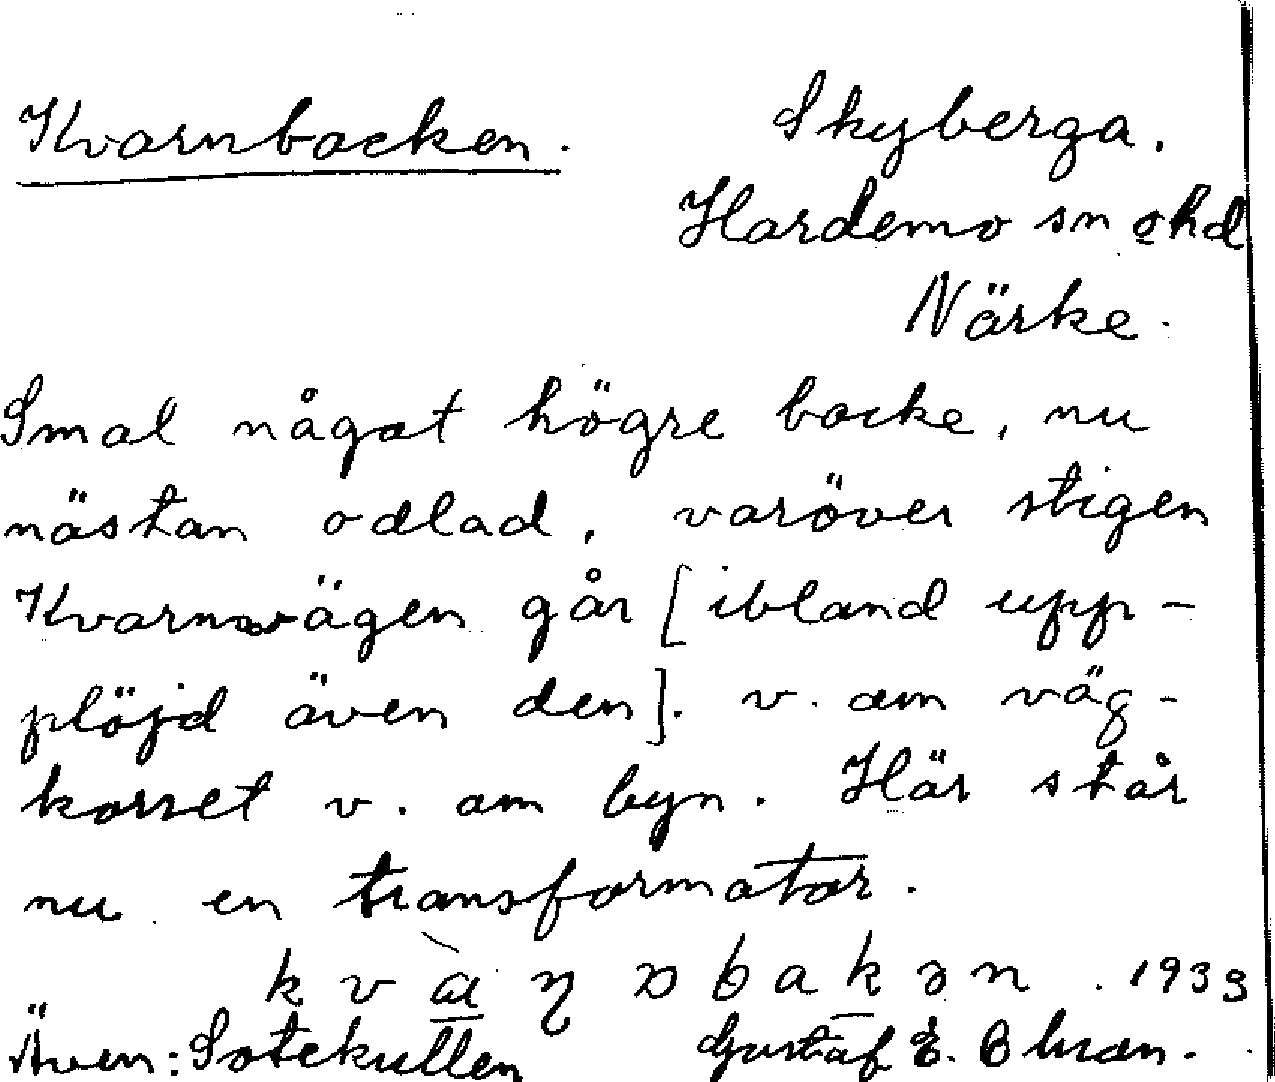 Kvarnbacken. Skyberga.
Hardemo sn o hd
Närke.
Smal något högre backe, nu
nästan odlad, varöver stigen
Kvarnvägen går [ibland upp-
plöjd även den]. v. om väg-
korset v. om byn. Här står
nu en transformator.
1933
Även: Sotekullen Gustaf E.